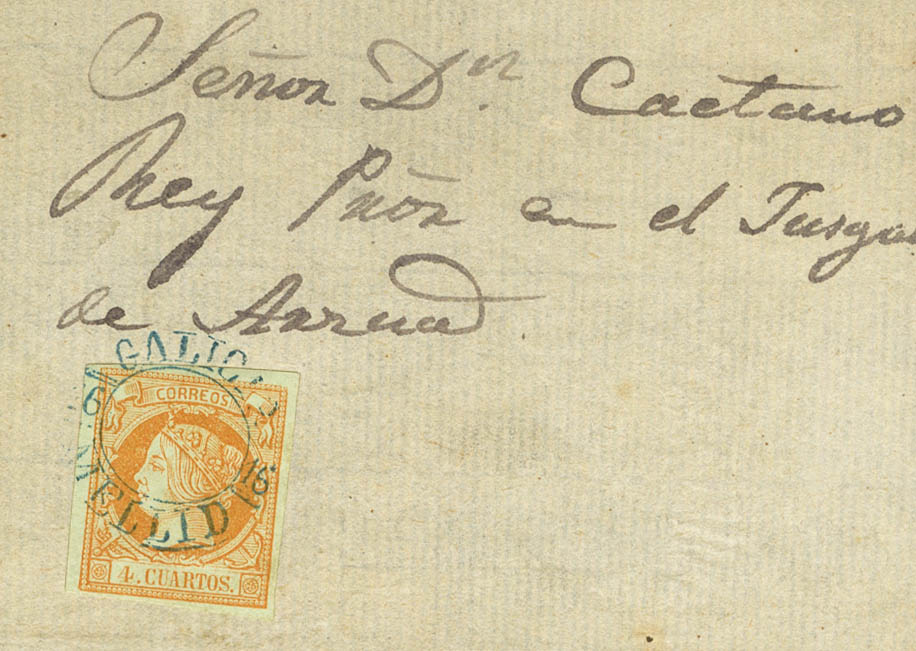 Señor Dn. Caetano
Rey Piñon en el Jusga
de Arzua
GALICIA
CORREOS
16
MELLID
4 CUARTOS.